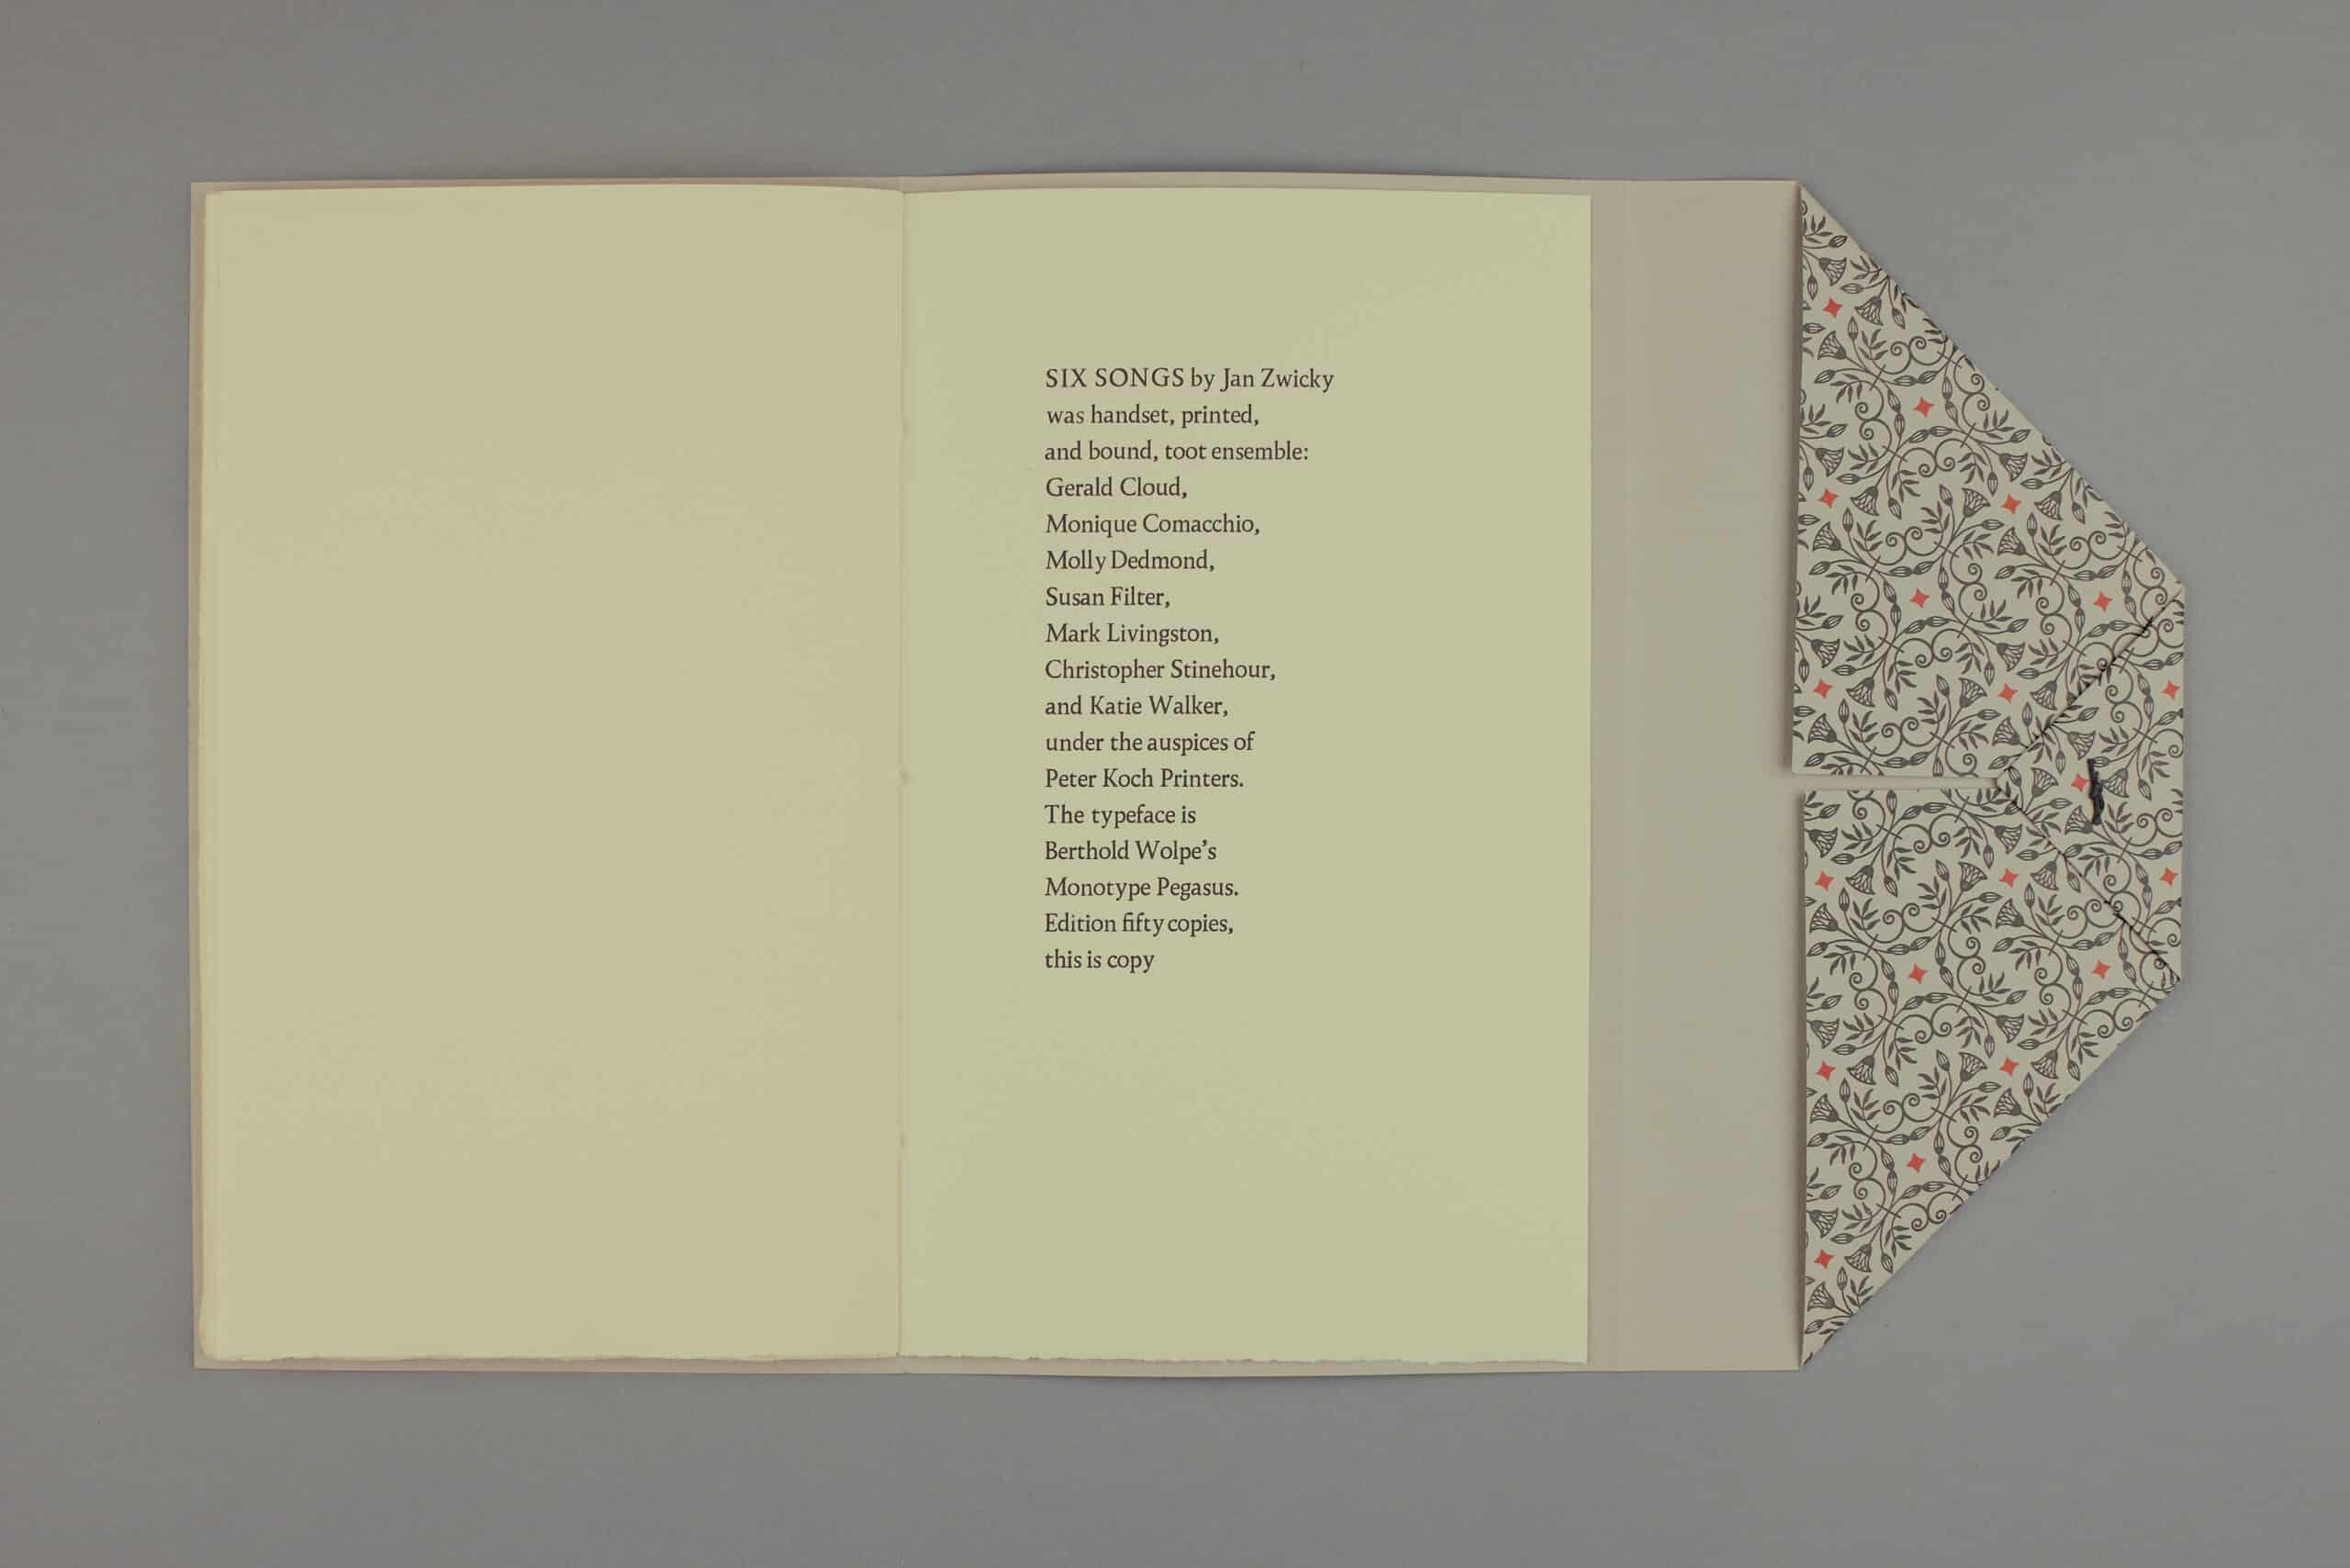 SIX SONGS by Jan Zwicky
was handset, printed,
and bound, toot ensemble:
Gerald Cloud,
Monique Comacchio,
Molly Dedmond,
Susan Filter,
Mark Livingston,
Christopher Stinehour,
and Katie Walker,
under the auspices of
Peter Koch Printers.
The typeface is
Berthold Wolpe’s
Monotype Pegasus.
Edition fifty copies,
this is copy